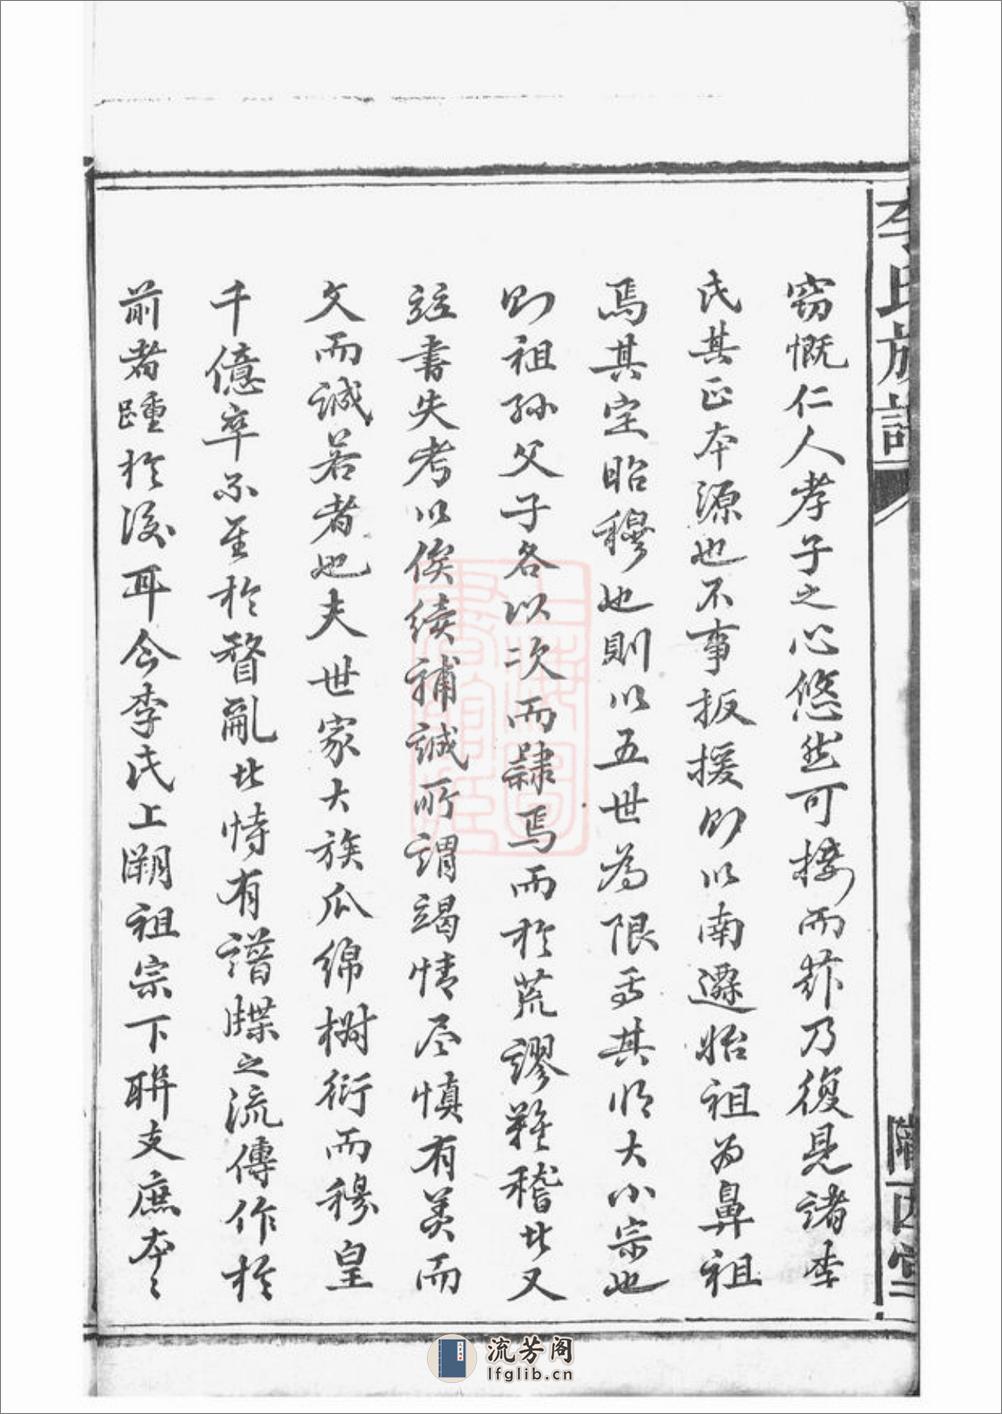 李氏族譜
隴西堂
窃慨仁人孝子之心悠然可接而茲乃復見諸李
氏其正本源也不事扳援則以南遷始祖为鼻祖
焉其定昭穆也則以五世為限焉其明大小宗也
則祖孙父子各以次而隸焉而於荒謬難稽者又
並書失考以俟續補誠所謂竭情尽慎有美而
文而誠若者也夫世家大族瓜綿樹衍而穆皇
千億率不至於瞀亂者恃有譜牒之流傳作於
前者踵於後耳今李氏上溯祖宗下聯支庶本之
上海圖書館藏
流芳阁
lfglib.cn